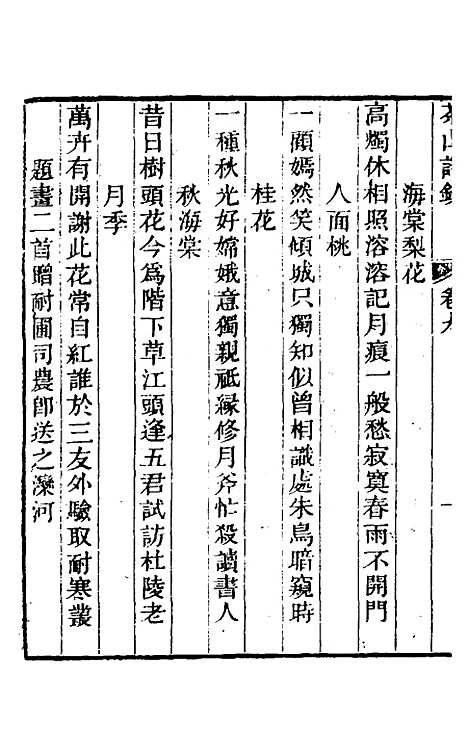 茶山詩鈔 卷九 一
海棠梨花
高燭休相照溶溶記月痕一般愁寂寞春雨不開門
人面桃
一顧嫣然笑傾城只獨知似曾相識處朱鳥暗窺時
桂花
一種秋光好嫦娥意獨親祗緣修月斧忙殺讀書人
秋海棠
昔日樹頭花今爲階下草江頭逢五君試訪杜陵老
月季
萬卉有開謝此花常自紅誰於三友外驗取耐寒叢
題畫二首贈耐圃司農卽送之灤河